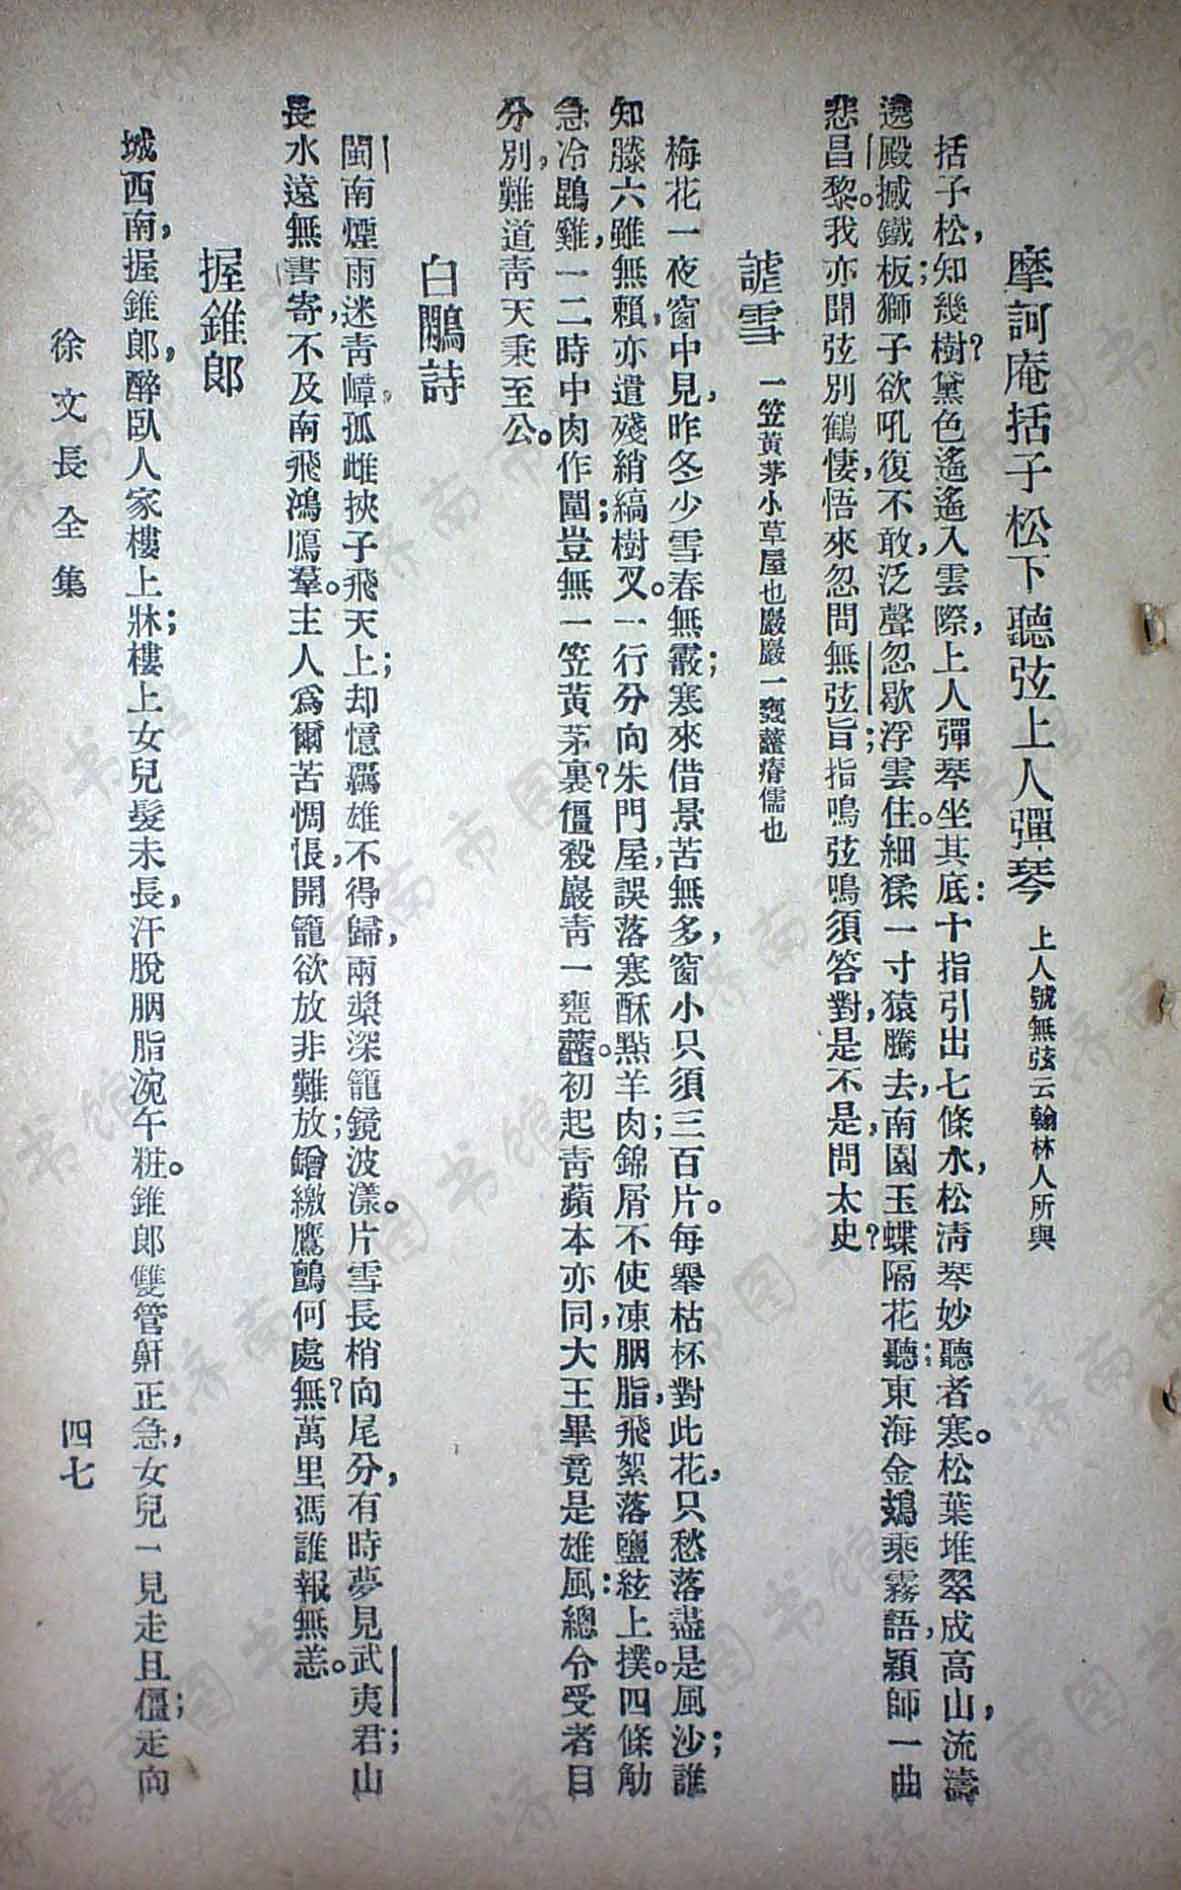 摩訶庵括子松下聽弦上人彈琴 上人號無弦云翰林人所與
括子松，知幾樹？黛色遙遙入雲際，上人彈琴坐其底：十指引出七條水，松淸琴妙聽者寒。松葉堆翠成高山，流濤
遶殿撼鐵板；獅子欲吼復不敢，泛聲忽歇浮雲住。細猱一寸猿騰去，南園玉蝶隔花聽；東海金鵶乘霧語，穎師一曲
悲昌黎。我亦聞弦別鶴悽，悟來忽問無弦旨；指鳴弦鳴須答對，是不是，問太史？
謔雪 一笠黃茅小草屋也巖巖一甕虀瘠儒也
梅花一夜窗中見，昨冬少雪春無霰；寒來借景苦無多，窗小只須三百片。每舉枯杯對此花，只愁落盡是風沙；誰
知滕六雖無賴，亦遣殘綃縞樹叉。一行分向朱門屋，誤落寒酥點羊肉；錦屑不使凍胭脂，飛絮落鹽紘上撲。四條觔
急冷鵾雞，一二時中肉作圍；豈無一笠黃茅裏？僵殺巖靑一甕虀。初起靑蘋本亦同，大王畢竟是雄風；總令受者目
分別，難道靑天秉至公。
白鷴詩
閩南煙雨迷靑嶂，孤雌挾子飛天上；却憶羈雄不得歸，兩槳深籠鏡波漾。片雪長梢向尾分，有時夢見武夷君；山
長水遠無書寄，不及南飛鴻鴈羣。主人爲爾苦惆悵，開籠欲放非難放；鏳繳鷹鸇何處無？萬里馮誰報無恙。
握錐郞
城西南，握錐郞，醉臥人家樓上牀；樓上女兒髮未長，汗脫胭脂涴午粧。錐郞雙管鼾正急，女兒一見走且僵；走向
徐文長全集
四七